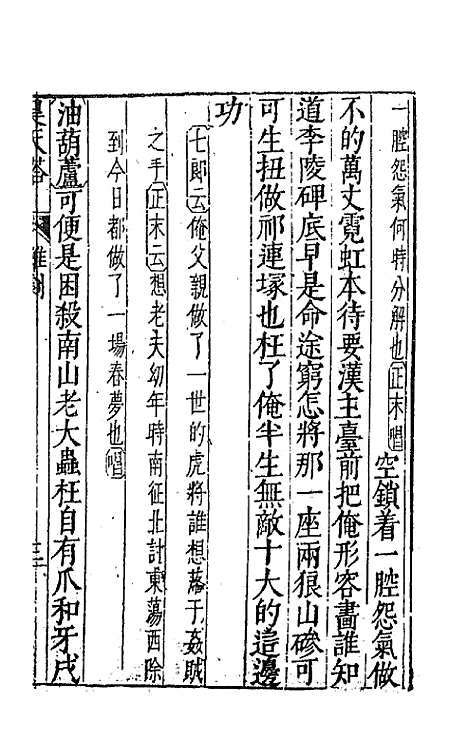 一腔怨氣何時分解也正末唱空鎖着一腔怨氣做
不的萬丈霓虹本待要漢主臺前把俺形容畫誰知
道李陵碑底早是命途窮怎將那一座兩狼山磣可
可生扭做祁連塚也枉了俺半生無敵十大的這邊
功
七郎云俺父親做了一世的虎將誰想落于姦賊
之手正末云想老夫幼年時南征北討東蕩西除
到今日都做了一場春夢也唱
油葫蘆可便是困殺南山老大蟲枉自有爪和牙戌
昊天塔 雜劇 三